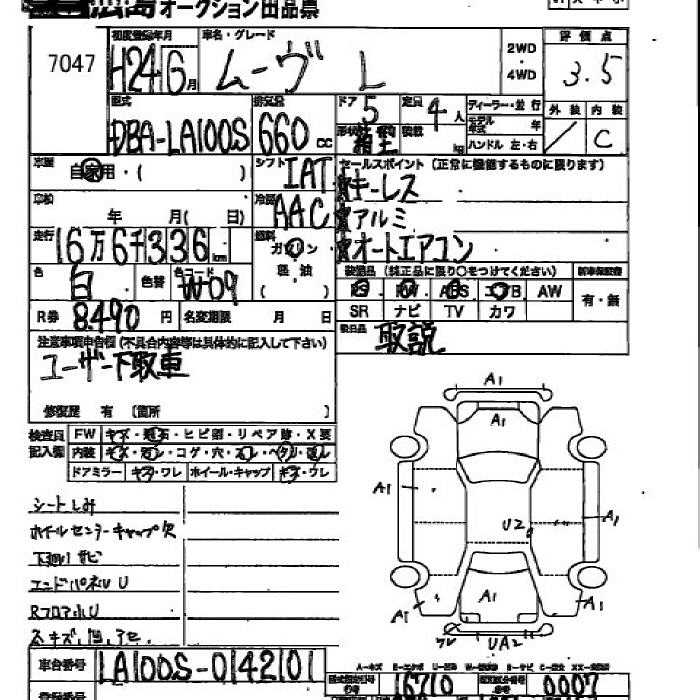 広島オークション出品票
7047
初度登録年月 H24 6月
車名・グレード ムーヴ L
2WD・4WD
評価点 3.5
型式 DBA-LA100S
排気量 660cc
ドア 5 定員 4人
形状 箱型 積載 kg
ディーラー・並行
モデル年式 年
ハンドル 左・右
外装 内装 C
車歴 自家用・( )
シフト IAT
セールスポイント (正常に機能するものに限ります)
キーレス
アルミ
オートエアコン
車検 年 月( 日)
冷房 AAC
走行 16万6千336km
燃料 ガソリン 軽油 ( )
色 白 色替 色コード W09
装備品 (純正品に限り○をつけてください) 新車保証書
PS PW ABS エアB AW 有・無
SR ナビ TV カワ
R券 8,490円 名変期限 月 日
後日品 取説
注意事項申告欄 (不具合内容等は具体的に記入して下さい)
ユーザー下取車
修復歴 有 〔箇所 〕
検査員記入欄 FW キズ・飛石・ヒビ割・リペア跡・X要
内装 キズ・汚レ・コゲ・穴・スレ・ヘタリ・
ドアミラー キズ・ワレ ホイール・キャップ キズ・ワレ
シートしみ
ホイルセンターキャップ欠
下廻りサビ
エンドパネルU
Rフロア小U
A1
A1
A1
U2
A1
A1
A1
A1
ワレ UA2
車台番号 LA100S-0142101
16710
0007